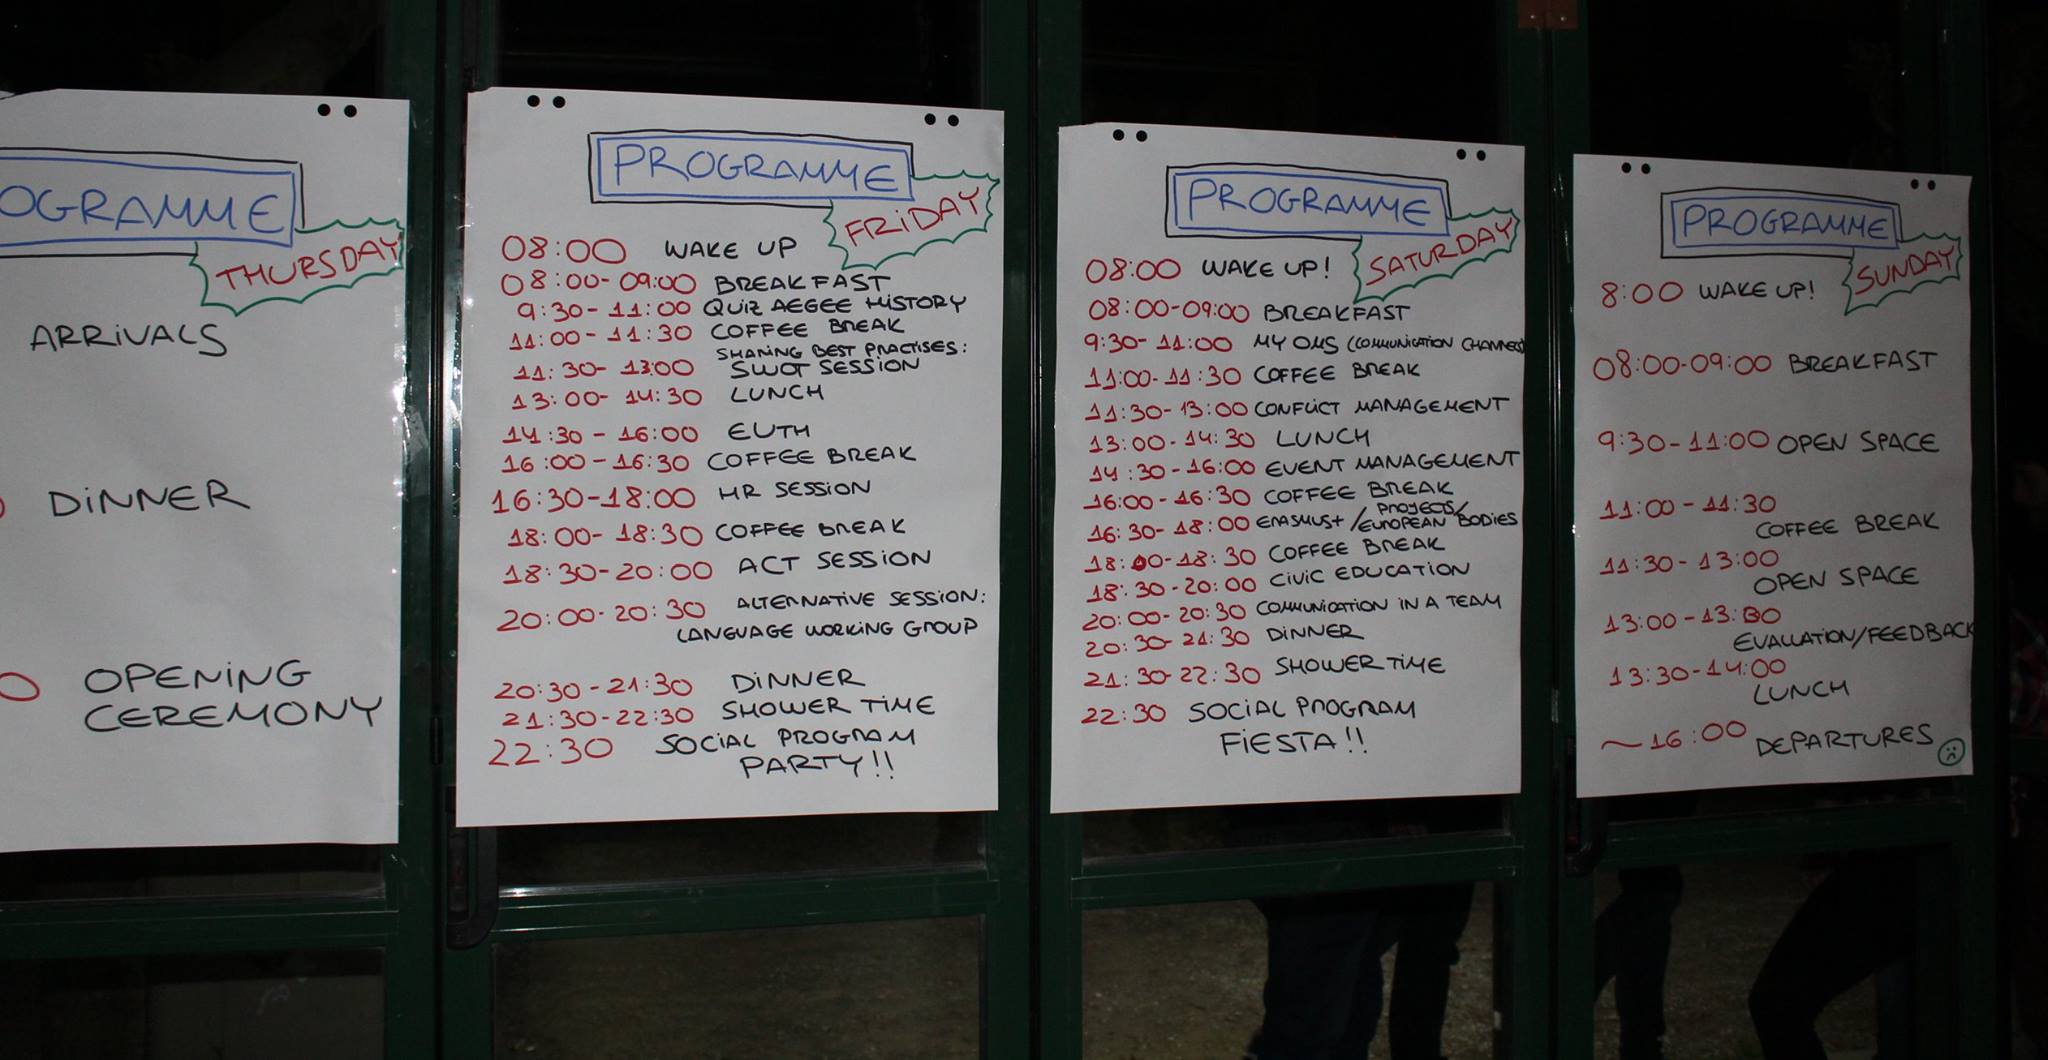 OGRAMME
THURSDAY
ARRIVALS
DINNER
OPENING
CEREMONY
PROGRAMME
FRIDAY
08:00 WAKE UP
08:00-09:00 BREAKFAST
9:30-11:00 QUIZ AEGEE HISTORY
11:00-11:30 COFFEE BREAK
SHARING BEST PRACTISES:
11:30-13:00 SWOT SESSION
13:00-14:30 LUNCH
14:30-16:00 EUTH
16:00-16:30 COFFEE BREAK
16:30-18:00 HR SESSION
18:00-18:30 COFFEE BREAK
18:30-20:00 ACT SESSION
20:00-20:30 ALTERNATIVE SESSION:
LANGUAGE WORKING GROUP
20:30-21:30 DINNER
21:30-22:30 SHOWER TIME
22:30 SOCIAL PROGRAM
PARTY!!
PROGRAMME
SATURDAY
08:00 WAKE UP!
08:00-09:00 BREAKFAST
9:30-11:00 MY OMS (COMMUNICATION CHANNELS)
11:00-11:30 COFFEE BREAK
11:30-13:00 CONFLICT MANAGEMENT
13:00-14:30 LUNCH
14:30-16:00 EVENT MANAGEMENT
16:00-16:30 COFFEE BREAK
PROYECTS/
16:30-18:00 ERASMUS+ /EUROPEAN BODIES
18:00-18:30 COFFEE BREAK
18:30-20:00 CIVIC EDUCATION
20:00-20:30 COMMUNICATION IN A TEAM
20:30-21:30 DINNER
21:30-22:30 SHOWER TIME
22:30 SOCIAL PROGRAM
FIESTA!!
PROGRAMME
SUNDAY
8:00 WAKE UP!
08:00-09:00 BREAKFAST
9:30-11:00 OPEN SPACE
11:00-11:30
COFFEE BREAK
11:30-13:00
OPEN SPACE
13:00-13:30
EVALUATION/FEEDBACK
13:30-14:00
LUNCH
~16:00 DEPARTURES